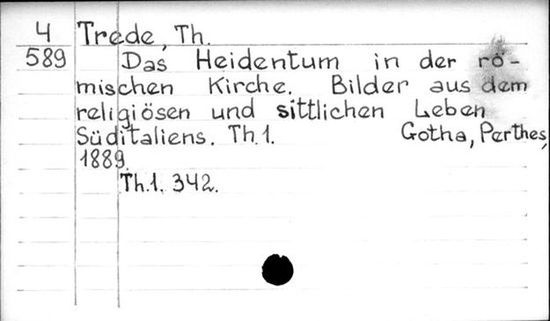 4 Trede, Th.
589 Das Heidentum in der rö-
mischen Kirche. Bilder aus dem
religiösen und sittlichen Leben
Süditaliens. Th.1. Gotha, Perthes,
1889.
Th.1. 342.